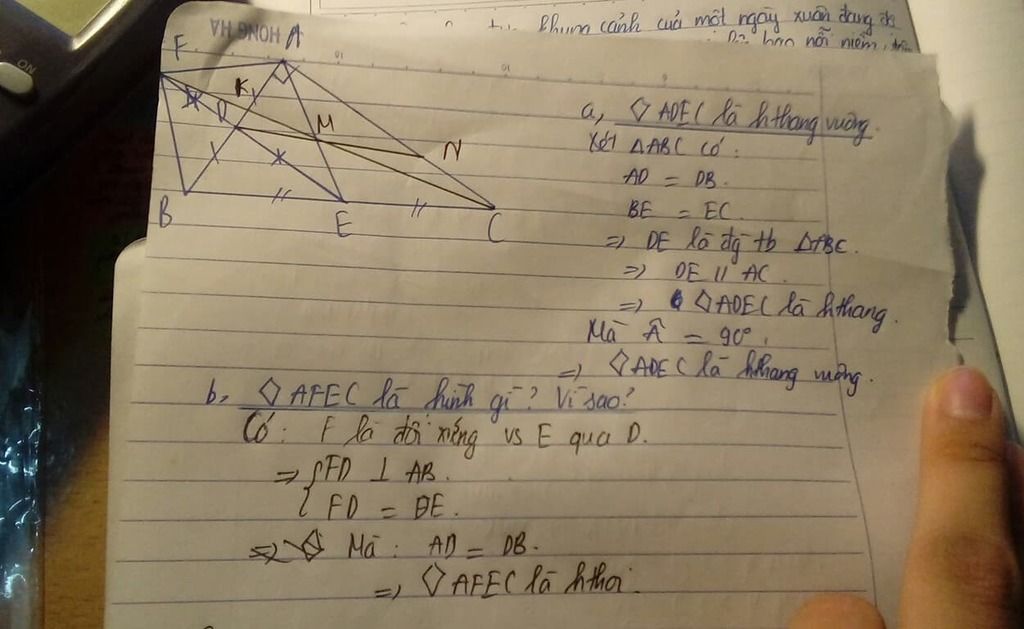 khung cảnh của một ngày xuân đang
HONG HA
F
A
K
D
M
N
B
E
C
a, ◇ ADEC là hthang vuông.
Xét ΔABC có:
AD = DB.
BE = EC.
=> DE là đg tb ΔABC.
=> DE // AC.
=> ◇ADEC là hthang.
Mà Â = 90°.
=> ◇ADEC là hthang vuông.
b, ◇ AFEC là hình gì? Vì sao?
Có: F là đối xứng vs E qua D.
=> { FD ⊥ AB.
FD = DE.
Mà: AD = DB.
=> ◇AFEC là hthoi.
ON